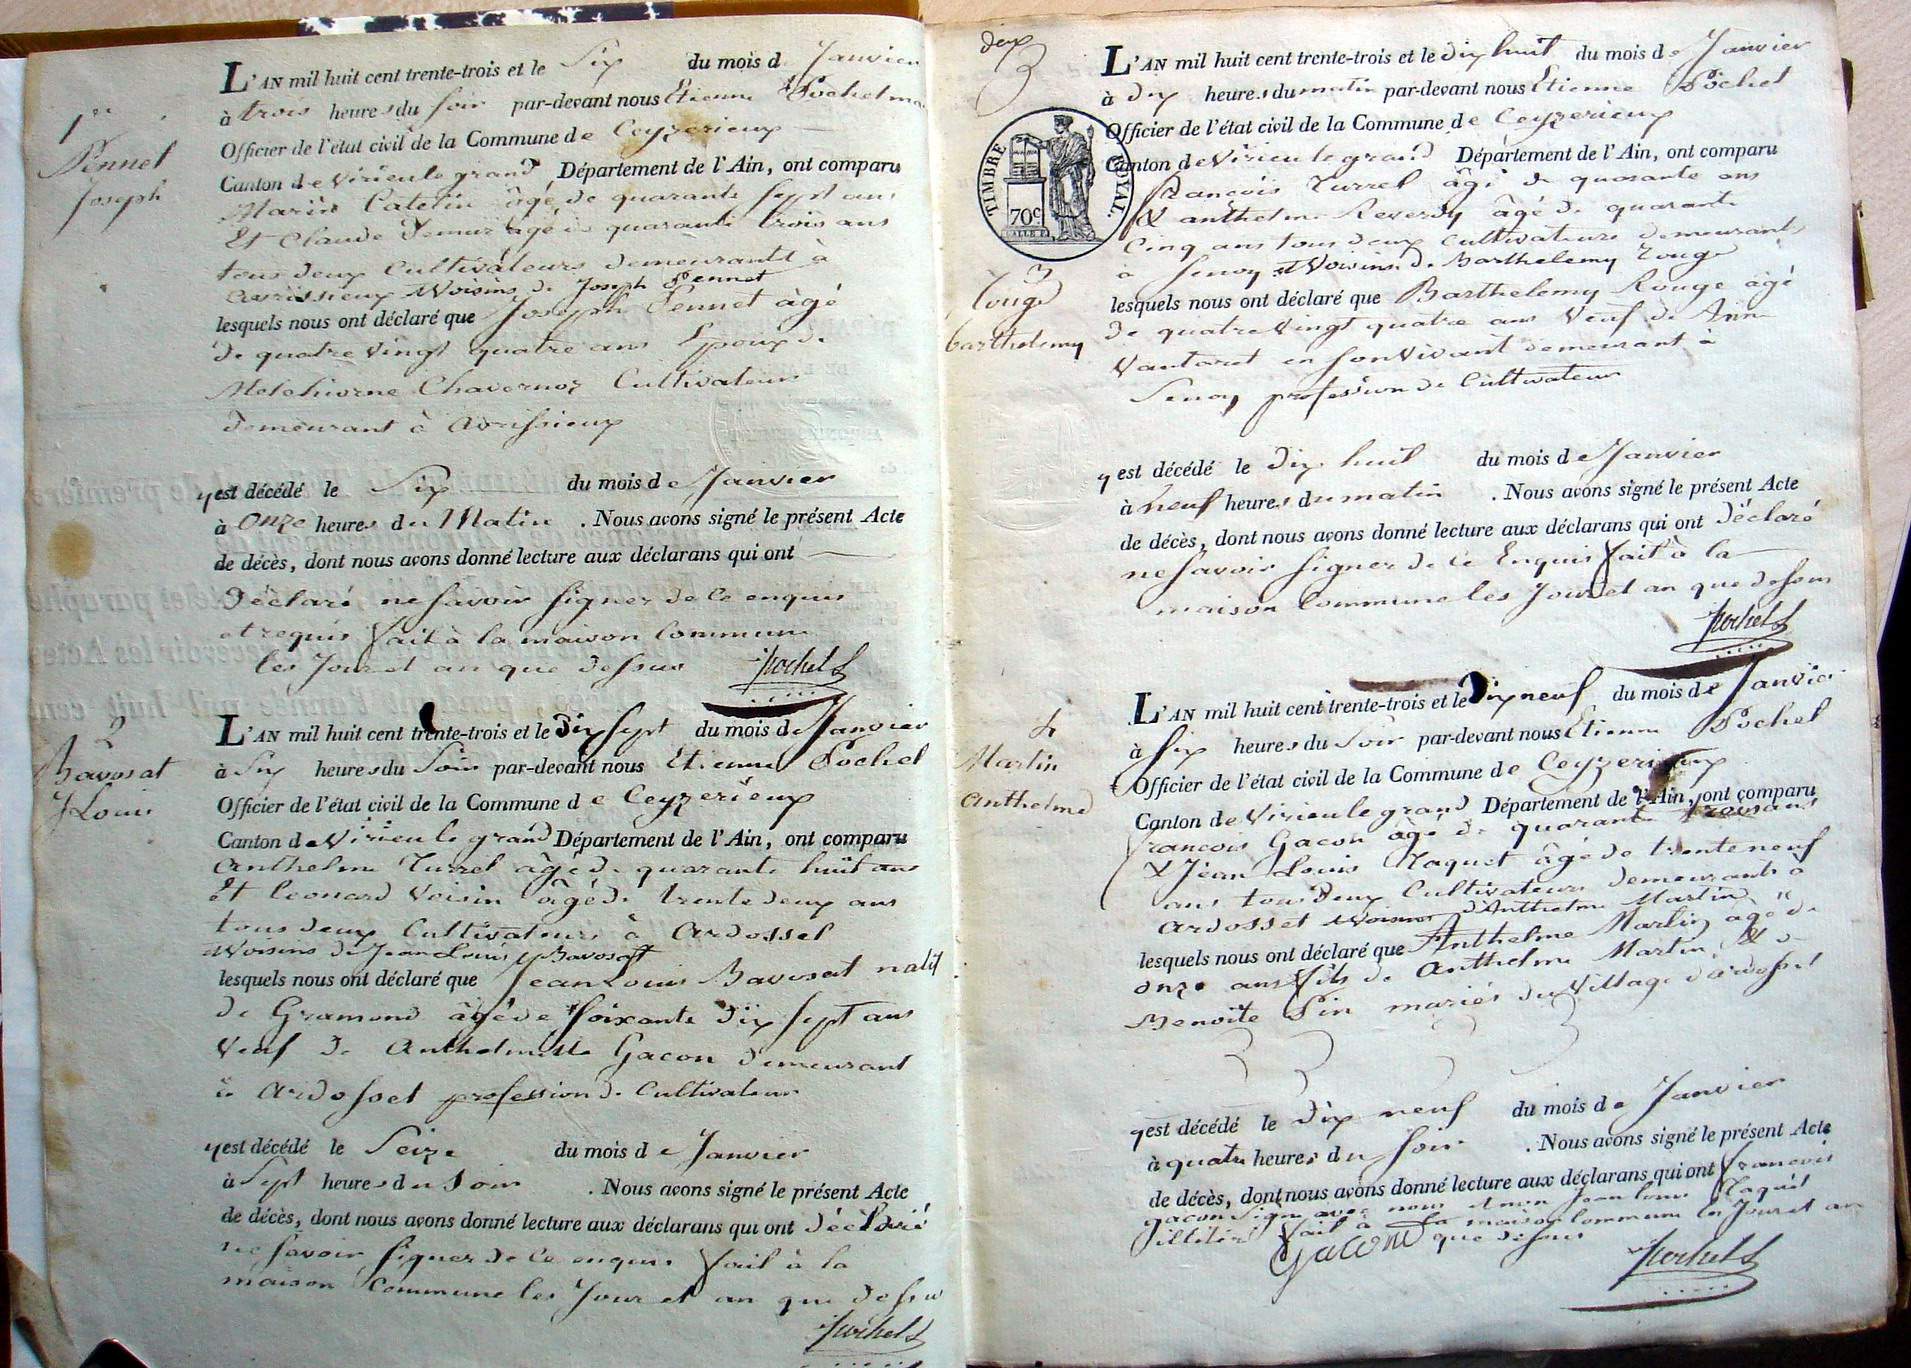 1er
Pennet
Joseph
L'AN mil huit cent trente-trois et le Six du mois d Janvier
à trois heures du soir par-devant nous Etienne Pochet ma
Officier de l'état civil de la Commune de Ceyzerieux
Canton de Virieu le grand Département de l'Ain, ont comparu
Marin Catelin âgé de quarante sept ans
Et Claude Demur âgé de quarante trois ans
tous deux Cultivateurs demeurants à
avrissieux Woisins de Joseph Pennet
lesquels nous ont déclaré que Joseph Pennet âgé
de quatre vingt quatre ans Epoux de
Melchiorne Chavernoz Cultivateur
demeurant à avrissieux
yest décédé le Six du mois de Janvier
à Onze heures du Matin . Nous avons signé le présent Acte
de décès, dont nous avons donné lecture aux déclarans qui ont
Déclaré ne savoir signer de ce enquis
et requis fait à la maison Commune
les Jour et an que dessus Pochet
2
Bavosat
J Louis
L'AN mil huit cent trente-trois et le Dix sept du mois de Janvier
à Six heures du Soir par-devant nous Etienne Pochet
Officier de l'état civil de la Commune de Ceyzerieux
Canton de Virieu le grand Département de l'Ain, ont comparu
Anthelme Turrel âgé de quarante huit ans
Et Leonard Voisin âgé de trente deux ans
tous deux Cultivateurs à Ardosset
Woisins de Jean Louis Bavosat
lesquels nous ont déclaré que Jean Louis Bavosat natif
de Gramond âgé de soixante dix sept ans
Veuf de Anthelmette Gacon demeurant
à Ardosset profession de Cultivateur
yest décédé le Seize du mois de Janvier
à Sept heures du Soir . Nous avons signé le présent Acte
de décès, dont nous avons donné lecture aux déclarans qui ont déclaré
ne savoir signer de ce enquis fait à la
maison Commune les Jour et an que dessus
Pochet
deux
TIMBRE ROYAL.
70c
L'AN mil huit cent trente-trois et le Dix huit du mois de Janvier
à dix heures du matin par-devant nous Etienne Pochet
Officier de l'état civil de la Commune de Ceyzerieux
Canton de Virieu le grand Département de l'Ain, ont comparu
François Turrel âgé de quarante ans
& anthelme Reverdy âgé de quarante
Cinq ans tous deux cultivateurs demeurants
à Senoy & Woisins de Barthelemy Rouge
3
Rouge
barthelemy
lesquels nous ont déclaré que Barthelemy Rouge âgé
de quatre vingt quatre ans Veuf de Anne
Vantaret en son Vivant demeurant à
Senoy profession de Cultivateur
yest décédé le Dix huit du mois de Janvier
à neuf heures du matin . Nous avons signé le présent Acte
de décès, dont nous avons donné lecture aux déclarans qui ont déclaré
ne savoir signer de ce Enquis fait à la
maison Commune les Jour et an que dessus
Pochet
4
Martin
Anthelme
L'AN mil huit cent trente-trois et le Dix neuf du mois de Janvier
à Six heures du Soir par-devant nous Etienne Pochet
Officier de l'état civil de la Commune de Ceyzerieux
Canton de Virieu le grand Département de l'Ain, ont comparu
francois Gacon âgé de quarante trois ans
& Jean Louis Maquet âgé de trente neuf
ans tous Deux Cultivateurs demeurants à
Ardosset Woisins d'Anthelme Martin
lesquels nous ont déclaré que Anthelme Martin âgé de
onze ans fils de Anthelme Martin & de
Benoite Pin mariés du Village d'ardosset
yest décédé le Dix neuf du mois de Janvier
à quatre heures du soir . Nous avons signé le présent Acte
de décès, dont nous avons donné lecture aux déclarans qui ont francois
gacon signé avec nous et non Jean Louis Maquet
illitéré fait à la maison Commune les Jour et an
que dessus
Gacon Pochet